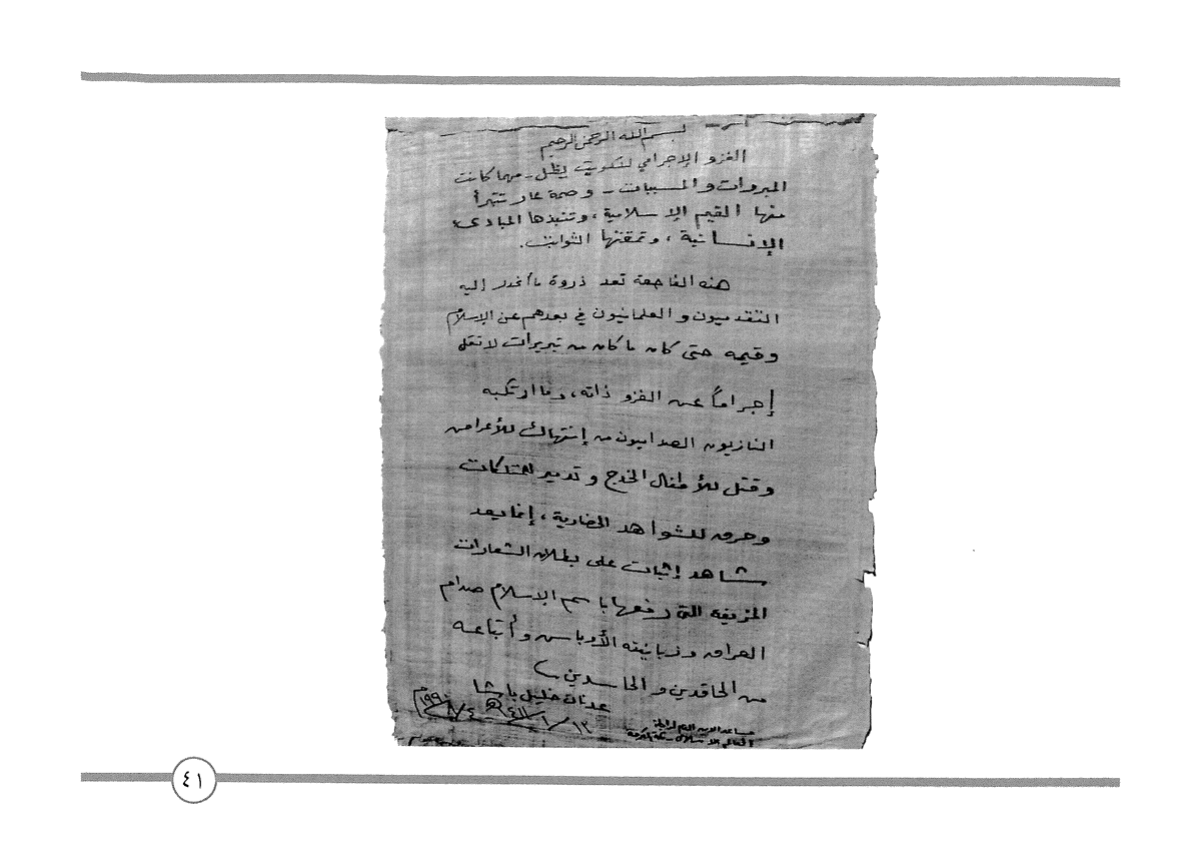 بسم الله الرحمن الرحيم
الغزو الإجرامي للكويت يظل - مهما كانت
المبررات والمسببات - وصمة عار تتبرأ
منها القيم الإسلامية ، وتنبذها المبادئ
الإنسانية ، وتمقتها الثوابت .
هذه الفاجعة تعد ذروة ما انحدر إليه
التقدميون والعلمانيون في بعدهم عن الإسلام
وقيمه حتى كان ما كان من تبريرات لا تقل
إجراماً عن الغزو ذاته ، وما ارتكبه
النازيون الصداميون من إنتهاك للأعراض
وقتل للأطفال الخدج وتدمير للممتلكات
وحرق للشواهد الحضارية ، إنما يعد
شاهد إثبات على بطلان الشعارات
المزيفة التي رفعها باسم الإسلام صدام
العراق وزبانيته الأوباش وأتباعه
من الحاقدين والحاسدين
عدنان خليل باشا
مساعد الأمين العام لرابطة
العالم الإسلامي - مكة المكرمة
٤١